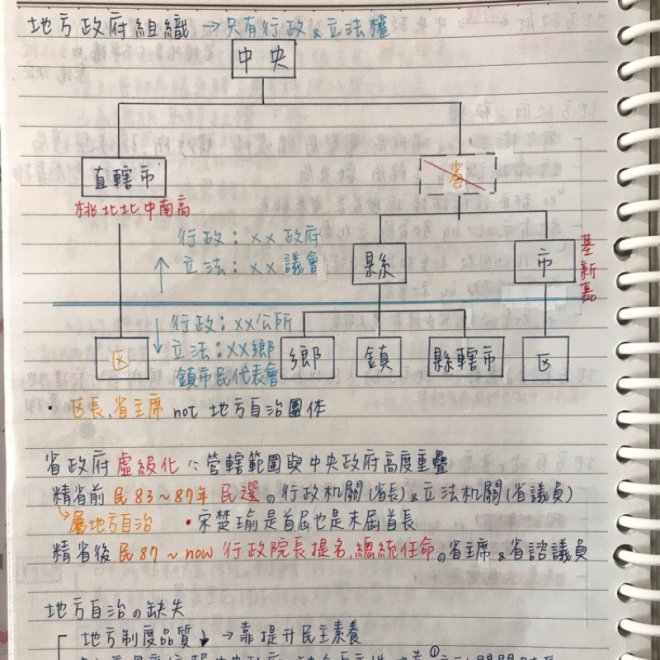 地方政府組織 → 只有行政 & 立法權
中央
直轄市
省
桃北北中南高
行政：××政府
↑ 立法：××議會
縣
市
基新嘉
↓ 行政：××公所
立法：××鄉
鎮市民代表會
区
鄉
鎮
縣轄市
区
• 区長、省主席 not 地方自治團体
省政府虛級化 ∵ 管轄範圍與中央政府高度重疊
精省前 民83~87年 民選の行政机關(省長) & 立法机關(省議員)
↳屬地方自治 • 宋楚瑜是首屆也是末屆首長
精省後 民87 ~ now 行政院長提名、總統任命の省主席 & 省諮議員
地方自治の缺失
地方制度品質↓ → 靠提升民主素養